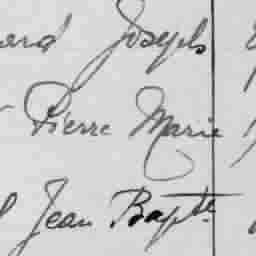 ard Joseph
Pierre Marie
Jean Bapte